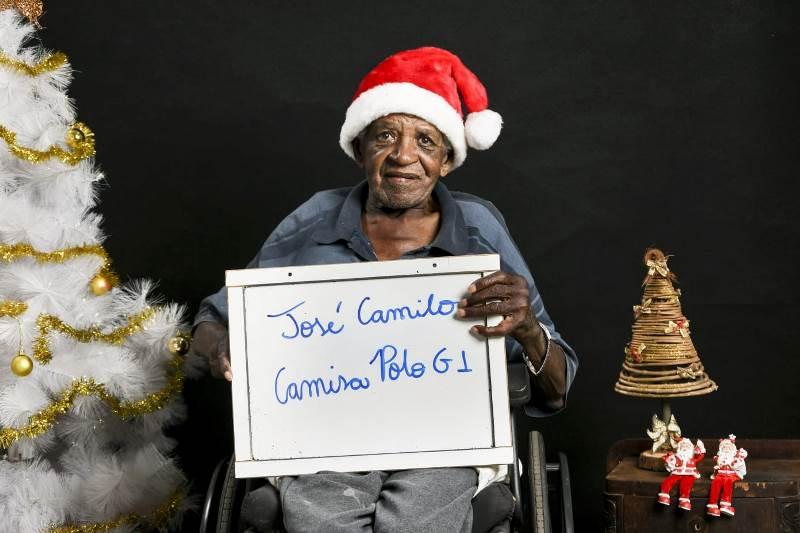 José Camilo
Camisa Polo G1